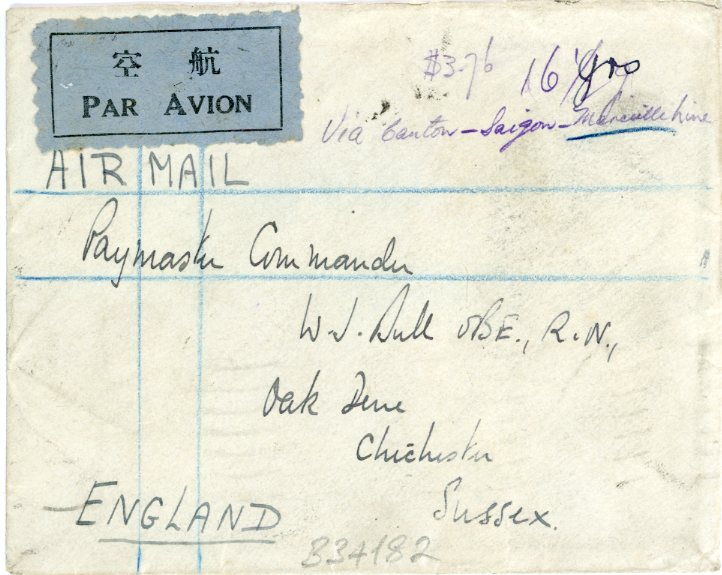 空 航
PAR AVION
$3.76 16 grs
Via Canton - Saigon - Marseille line
AIR MAIL
Paymaster Commander
W. J. Bull OBE., R.N.,
Oak Dene
Chichester
Sussex.
ENGLAND
834182